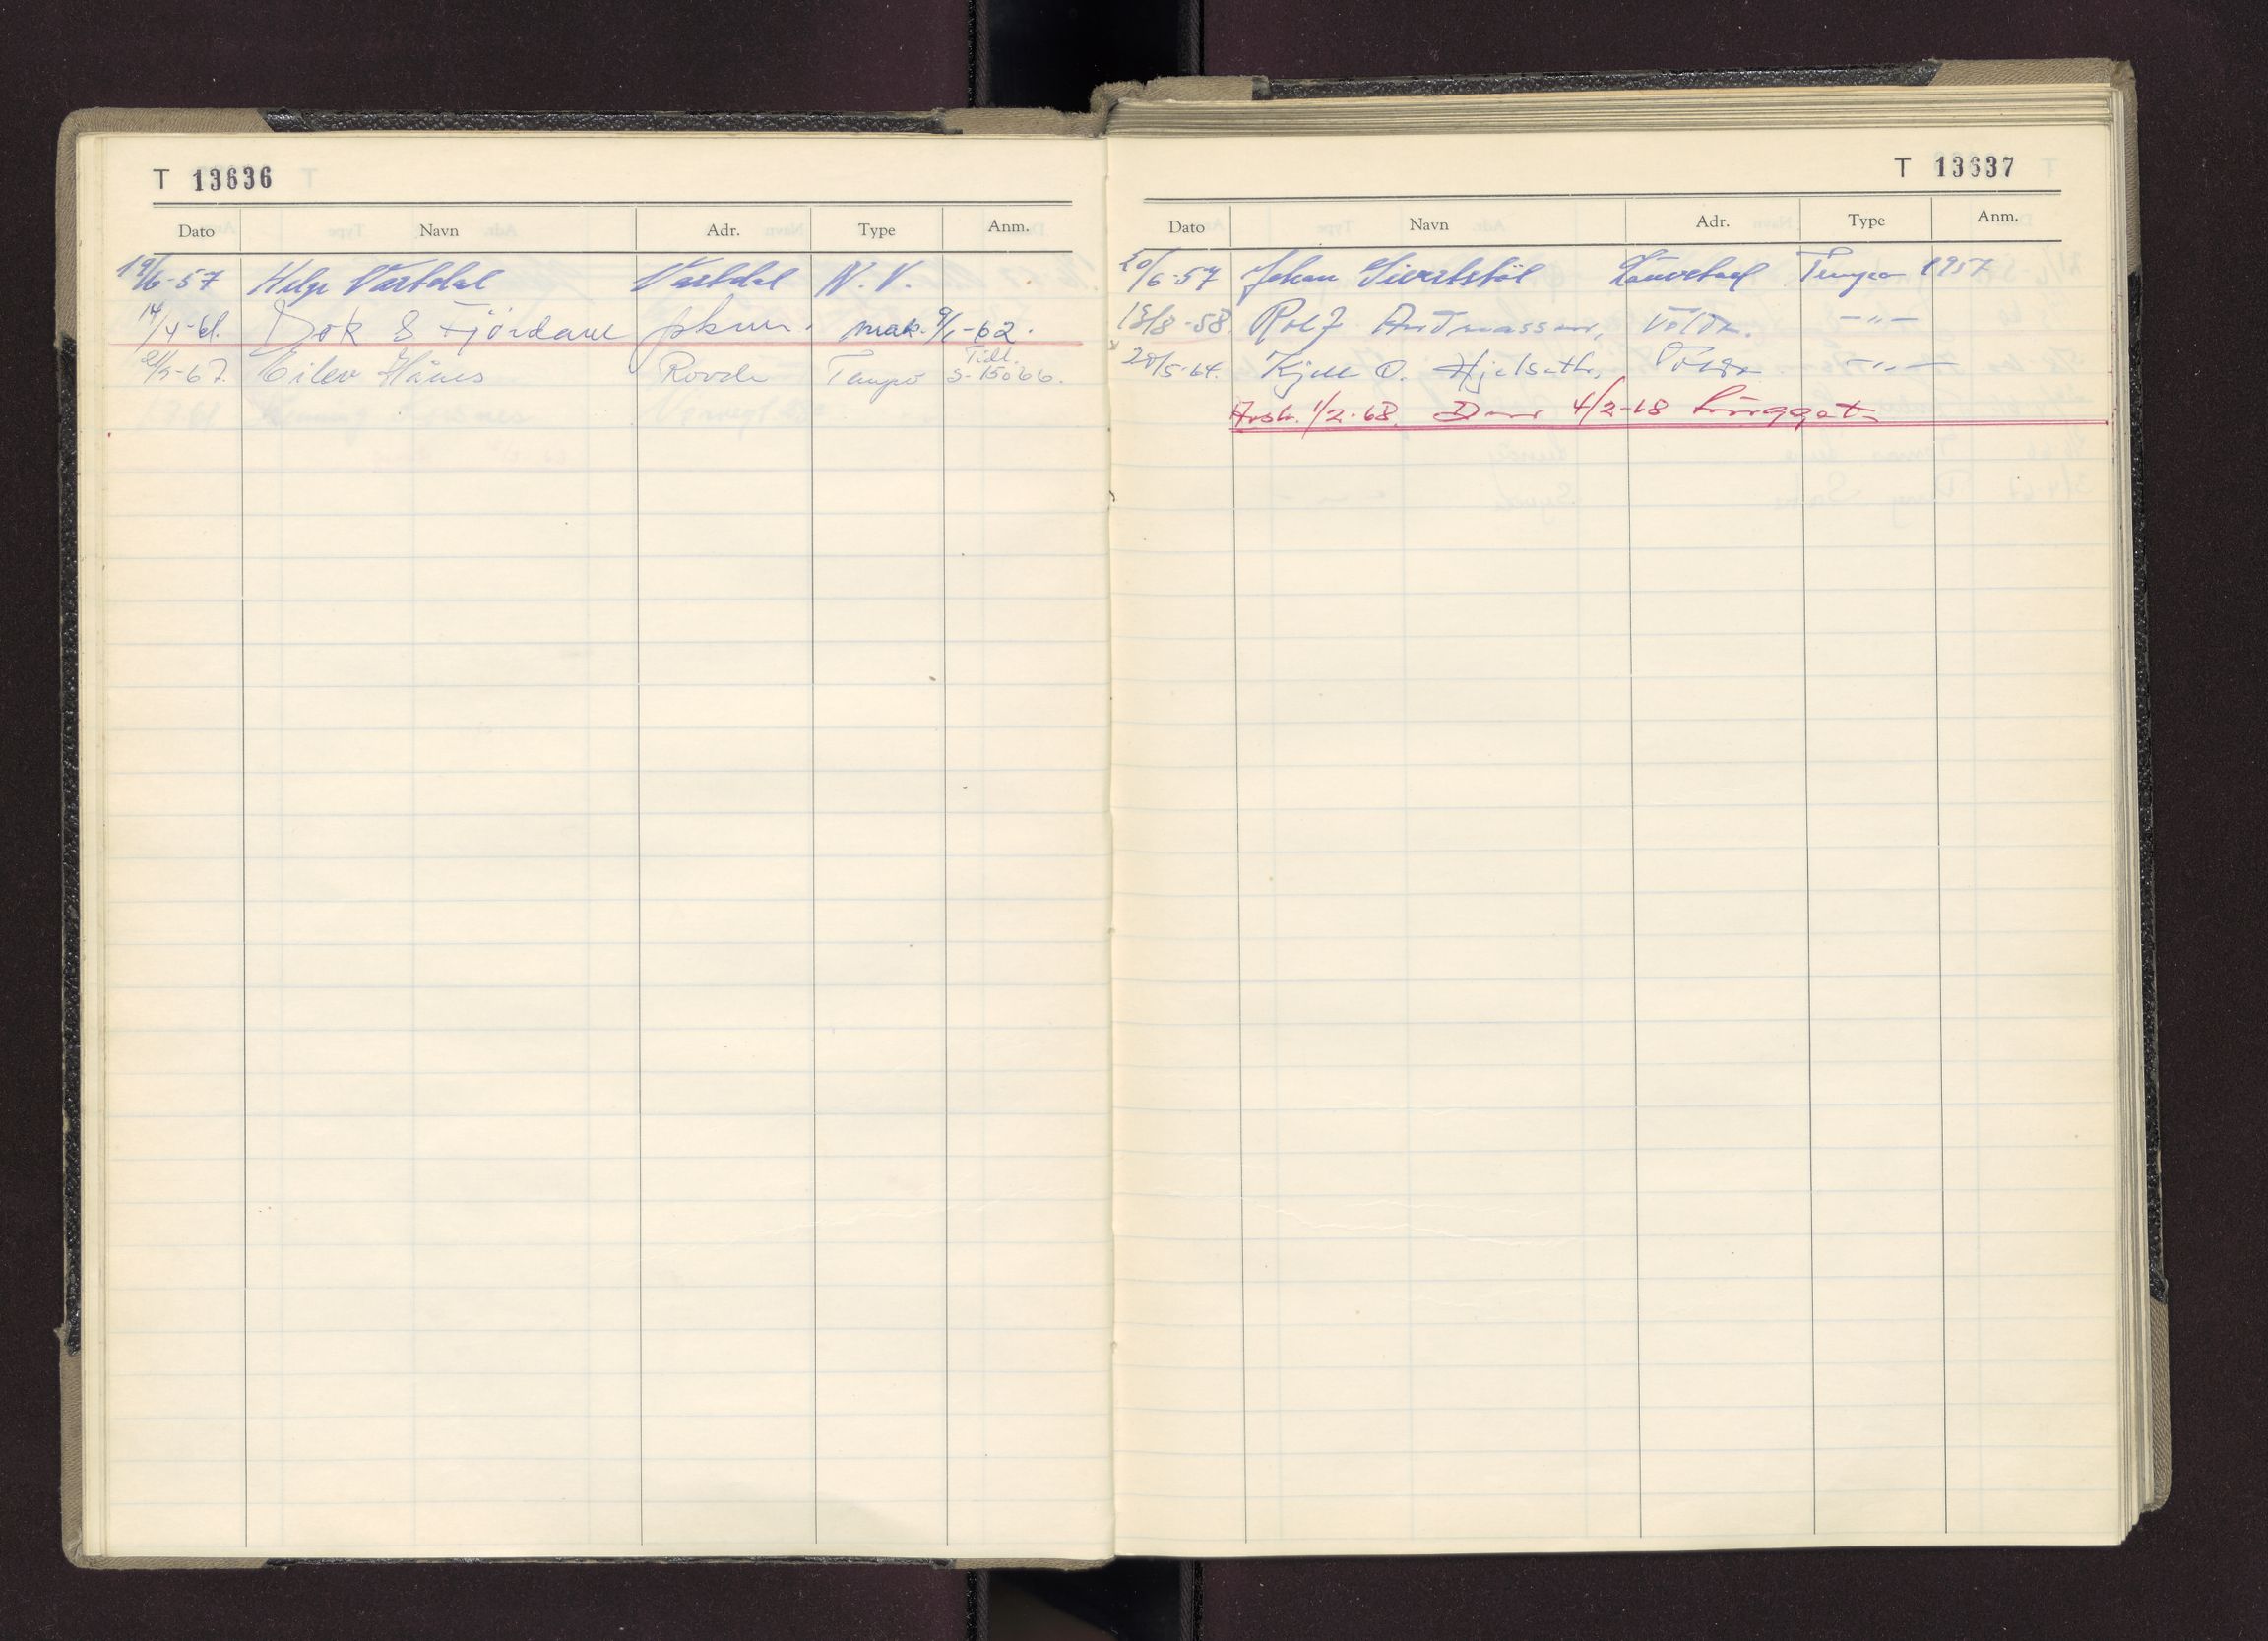 T 13636
Dato Navn Adr. Type Anm.
19/6-57 Helge Vartdal Vartdal N. V.
14/4-61. Sok & Fjordane mak. 9/1-62.
21/5-67. Eilev Hånes Rovde Tempo Tidl. S-15066.
T 13637
Dato Navn Adr. Type Anm.
20/6-57 Johan Sivertstøl Tempo 1957
15/8-58. Rolf Andreassen, Volda. -"-
20/5-64. Kjell O. Hjelseth, Volda -"-
Avsk. 1/2-68. 4/2-68 hugget